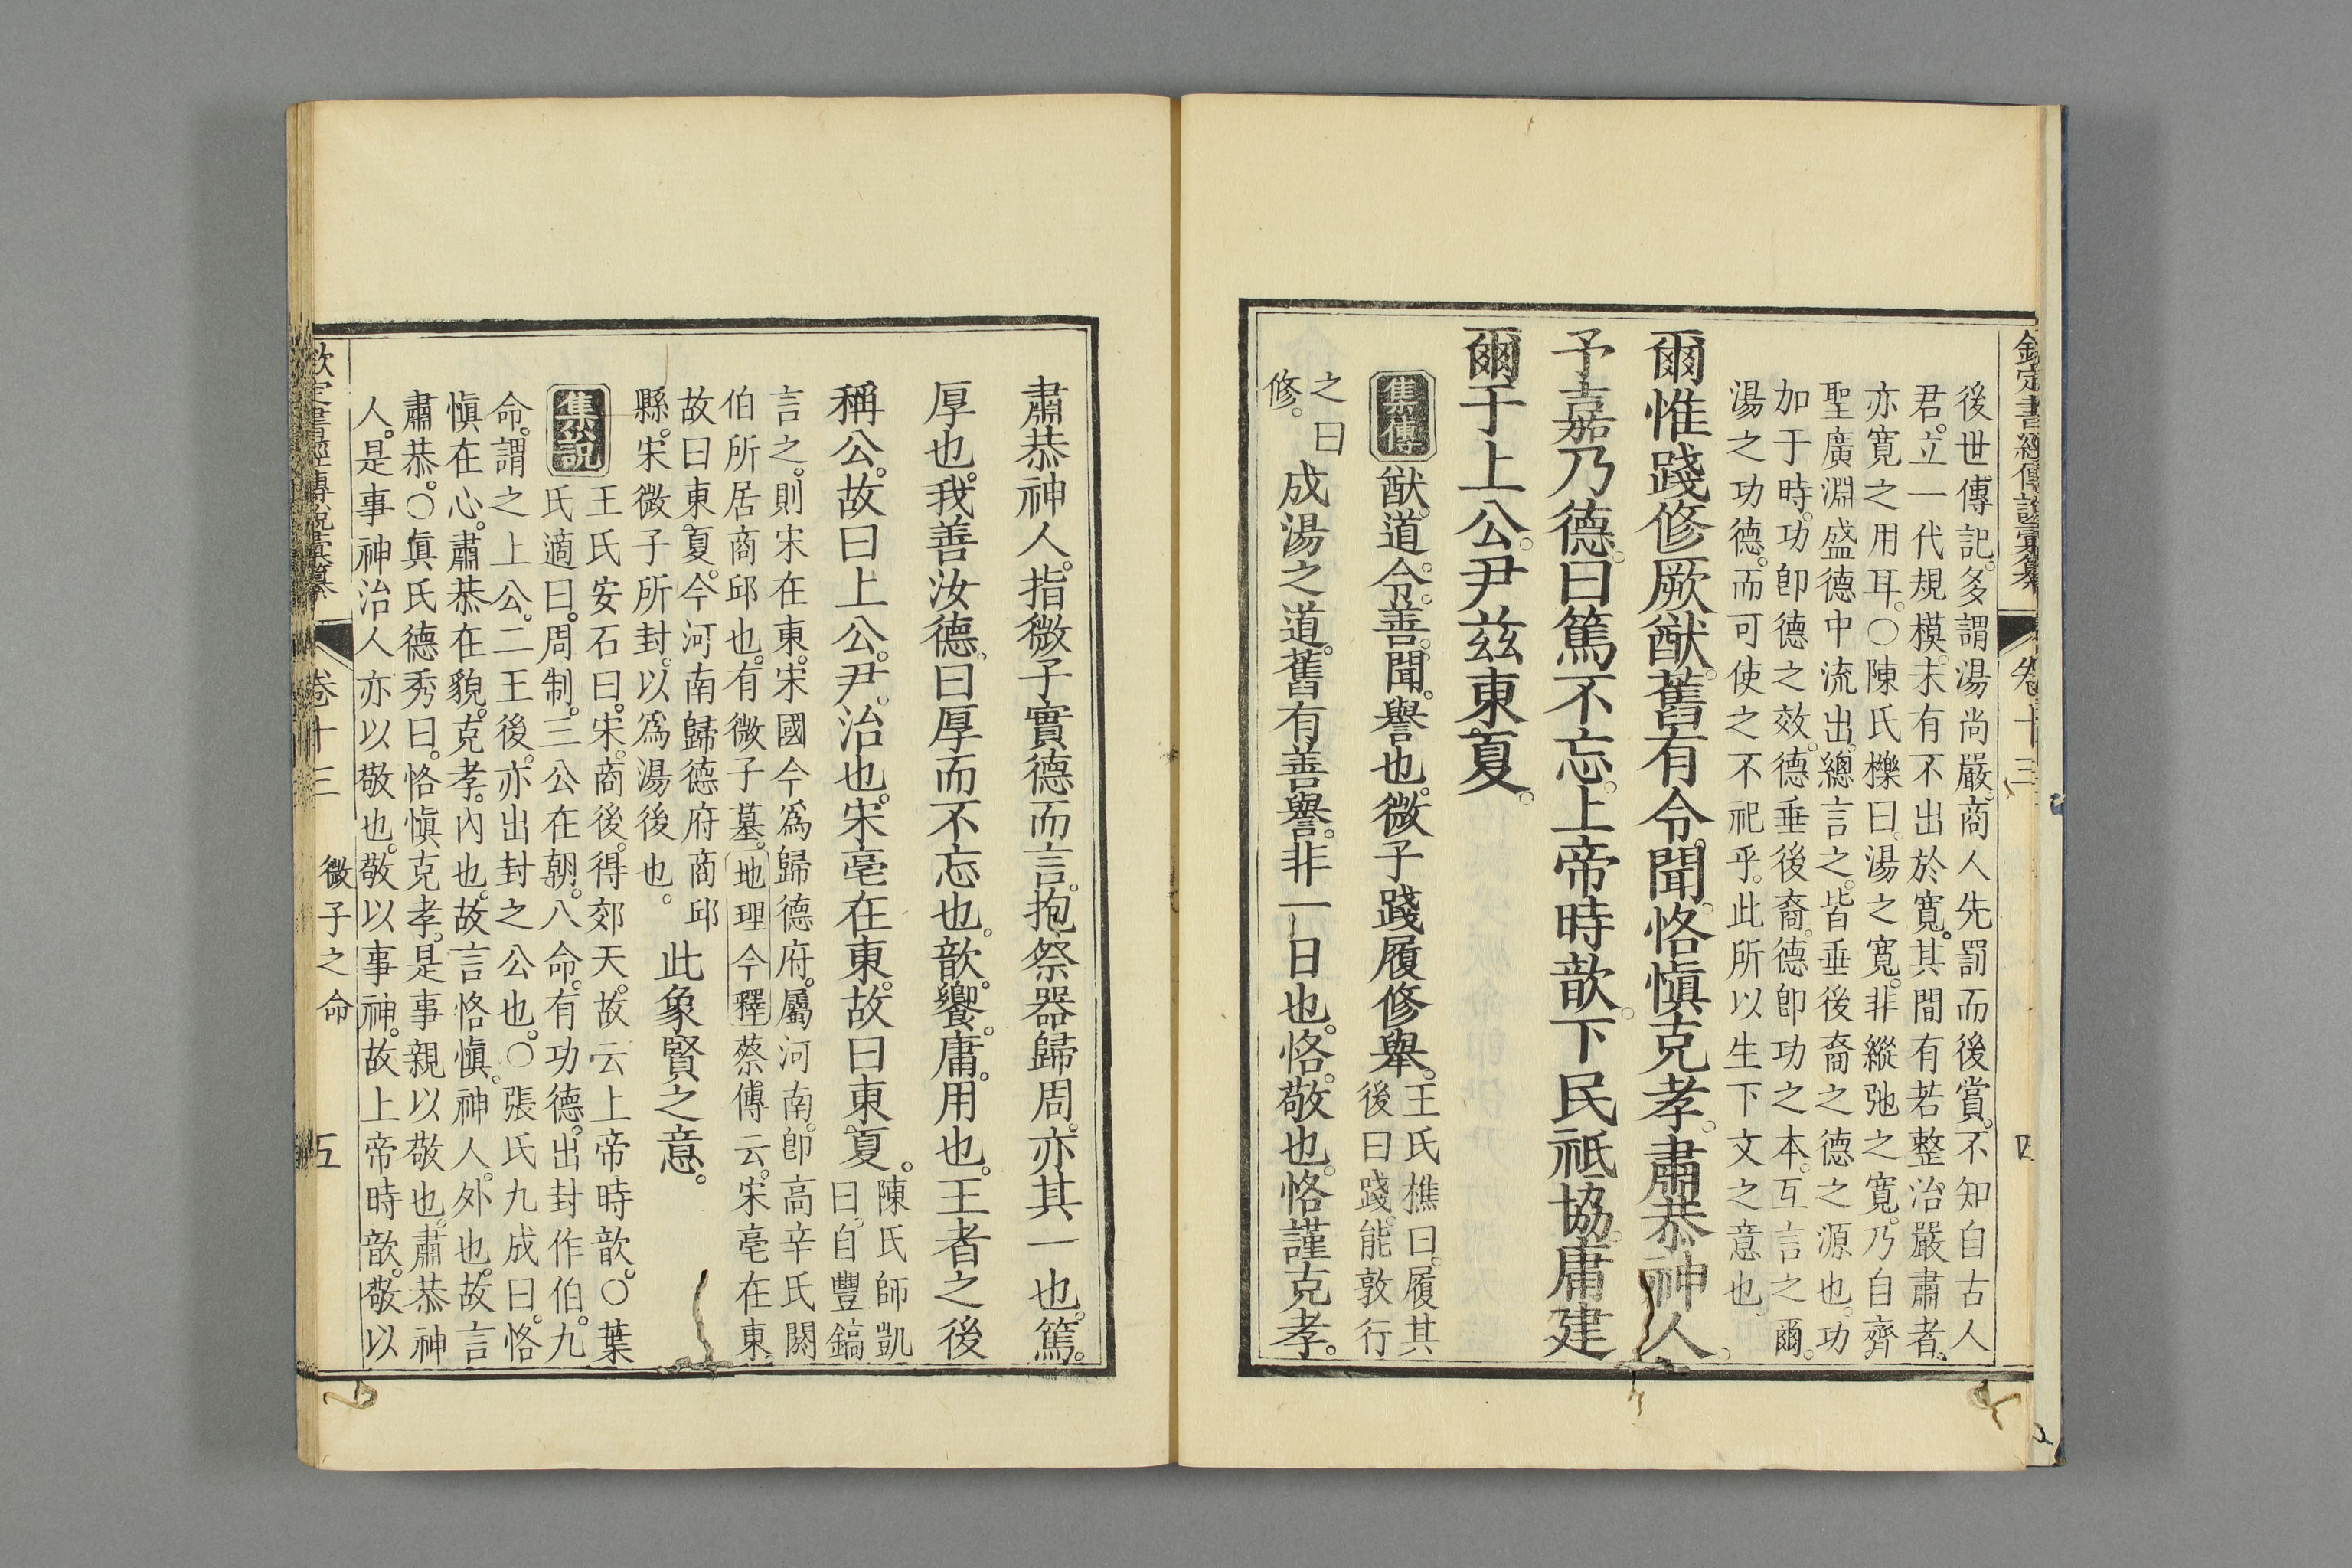 欽定書經傳說彙纂 卷十三 四
後世傳記。多謂湯尚嚴。商人先罰而後賞。不知自古人
君。立一代規模。未有不出於寬。其間有若整治嚴肅者。
亦寬之用耳。○陳氏櫟曰。湯之寬。非縱弛之寬。乃自齊
聖廣淵盛德中流出。總言之。皆垂後裔之德之源也。功
加于時。功卽德之效。德垂後裔。德卽功之本。互言之爾。
湯之功德。而可使之不祀乎。此所以生下文之意也。
爾惟踐修厥猷。舊有令聞。恪愼克孝。肅恭神人。
予嘉乃德。曰篤不忘。上帝時歆。下民祗協。庸建
爾于上公。尹茲東夏。
集傳 猷。道。令。善。聞。譽也。微子踐履修舉。王氏樵曰。履其
後曰踐。能敦行
之曰
修。
成湯之道。舊有善譽。非一日也。恪。敬也。恪謹克孝。
肅恭神人。指微子實德而言。抱祭器歸周。亦其一也。篤。
厚也。我善汝德。曰厚而不忘也。歆。饗。庸。用也。王者之後
稱公。故曰上公。尹。治也。宋亳在東。故曰東夏。陳氏師凱
曰。自豐鎬
言之。則宋在東。宋國今爲歸德府。屬河南。卽高辛氏閼
伯所居商邱也。有微子墓。地理今釋 蔡傳云。宋亳在東
故曰東夏。今河南歸德府商邱
縣。宋微子所封。以爲湯後也。
此象賢之意。
集說 王氏安石曰。宋。商後。得郊天。故云上帝時歆。○葉
氏適曰。周制。三公在朝。八命。有功德。出封作伯。九
命。謂之上公。二王後。亦出封之公也。○張氏九成曰。恪
愼在心。肅恭在貌。克孝。內也。故言恪愼。神人。外也。故言
肅恭。○眞氏德秀曰。恪愼克孝。是事親以敬也。肅恭神
人。是事神治人亦以敬也。敬以事神。故上帝時歆。敬以
欽定書經傳說彙纂 卷十三 微子之命 五